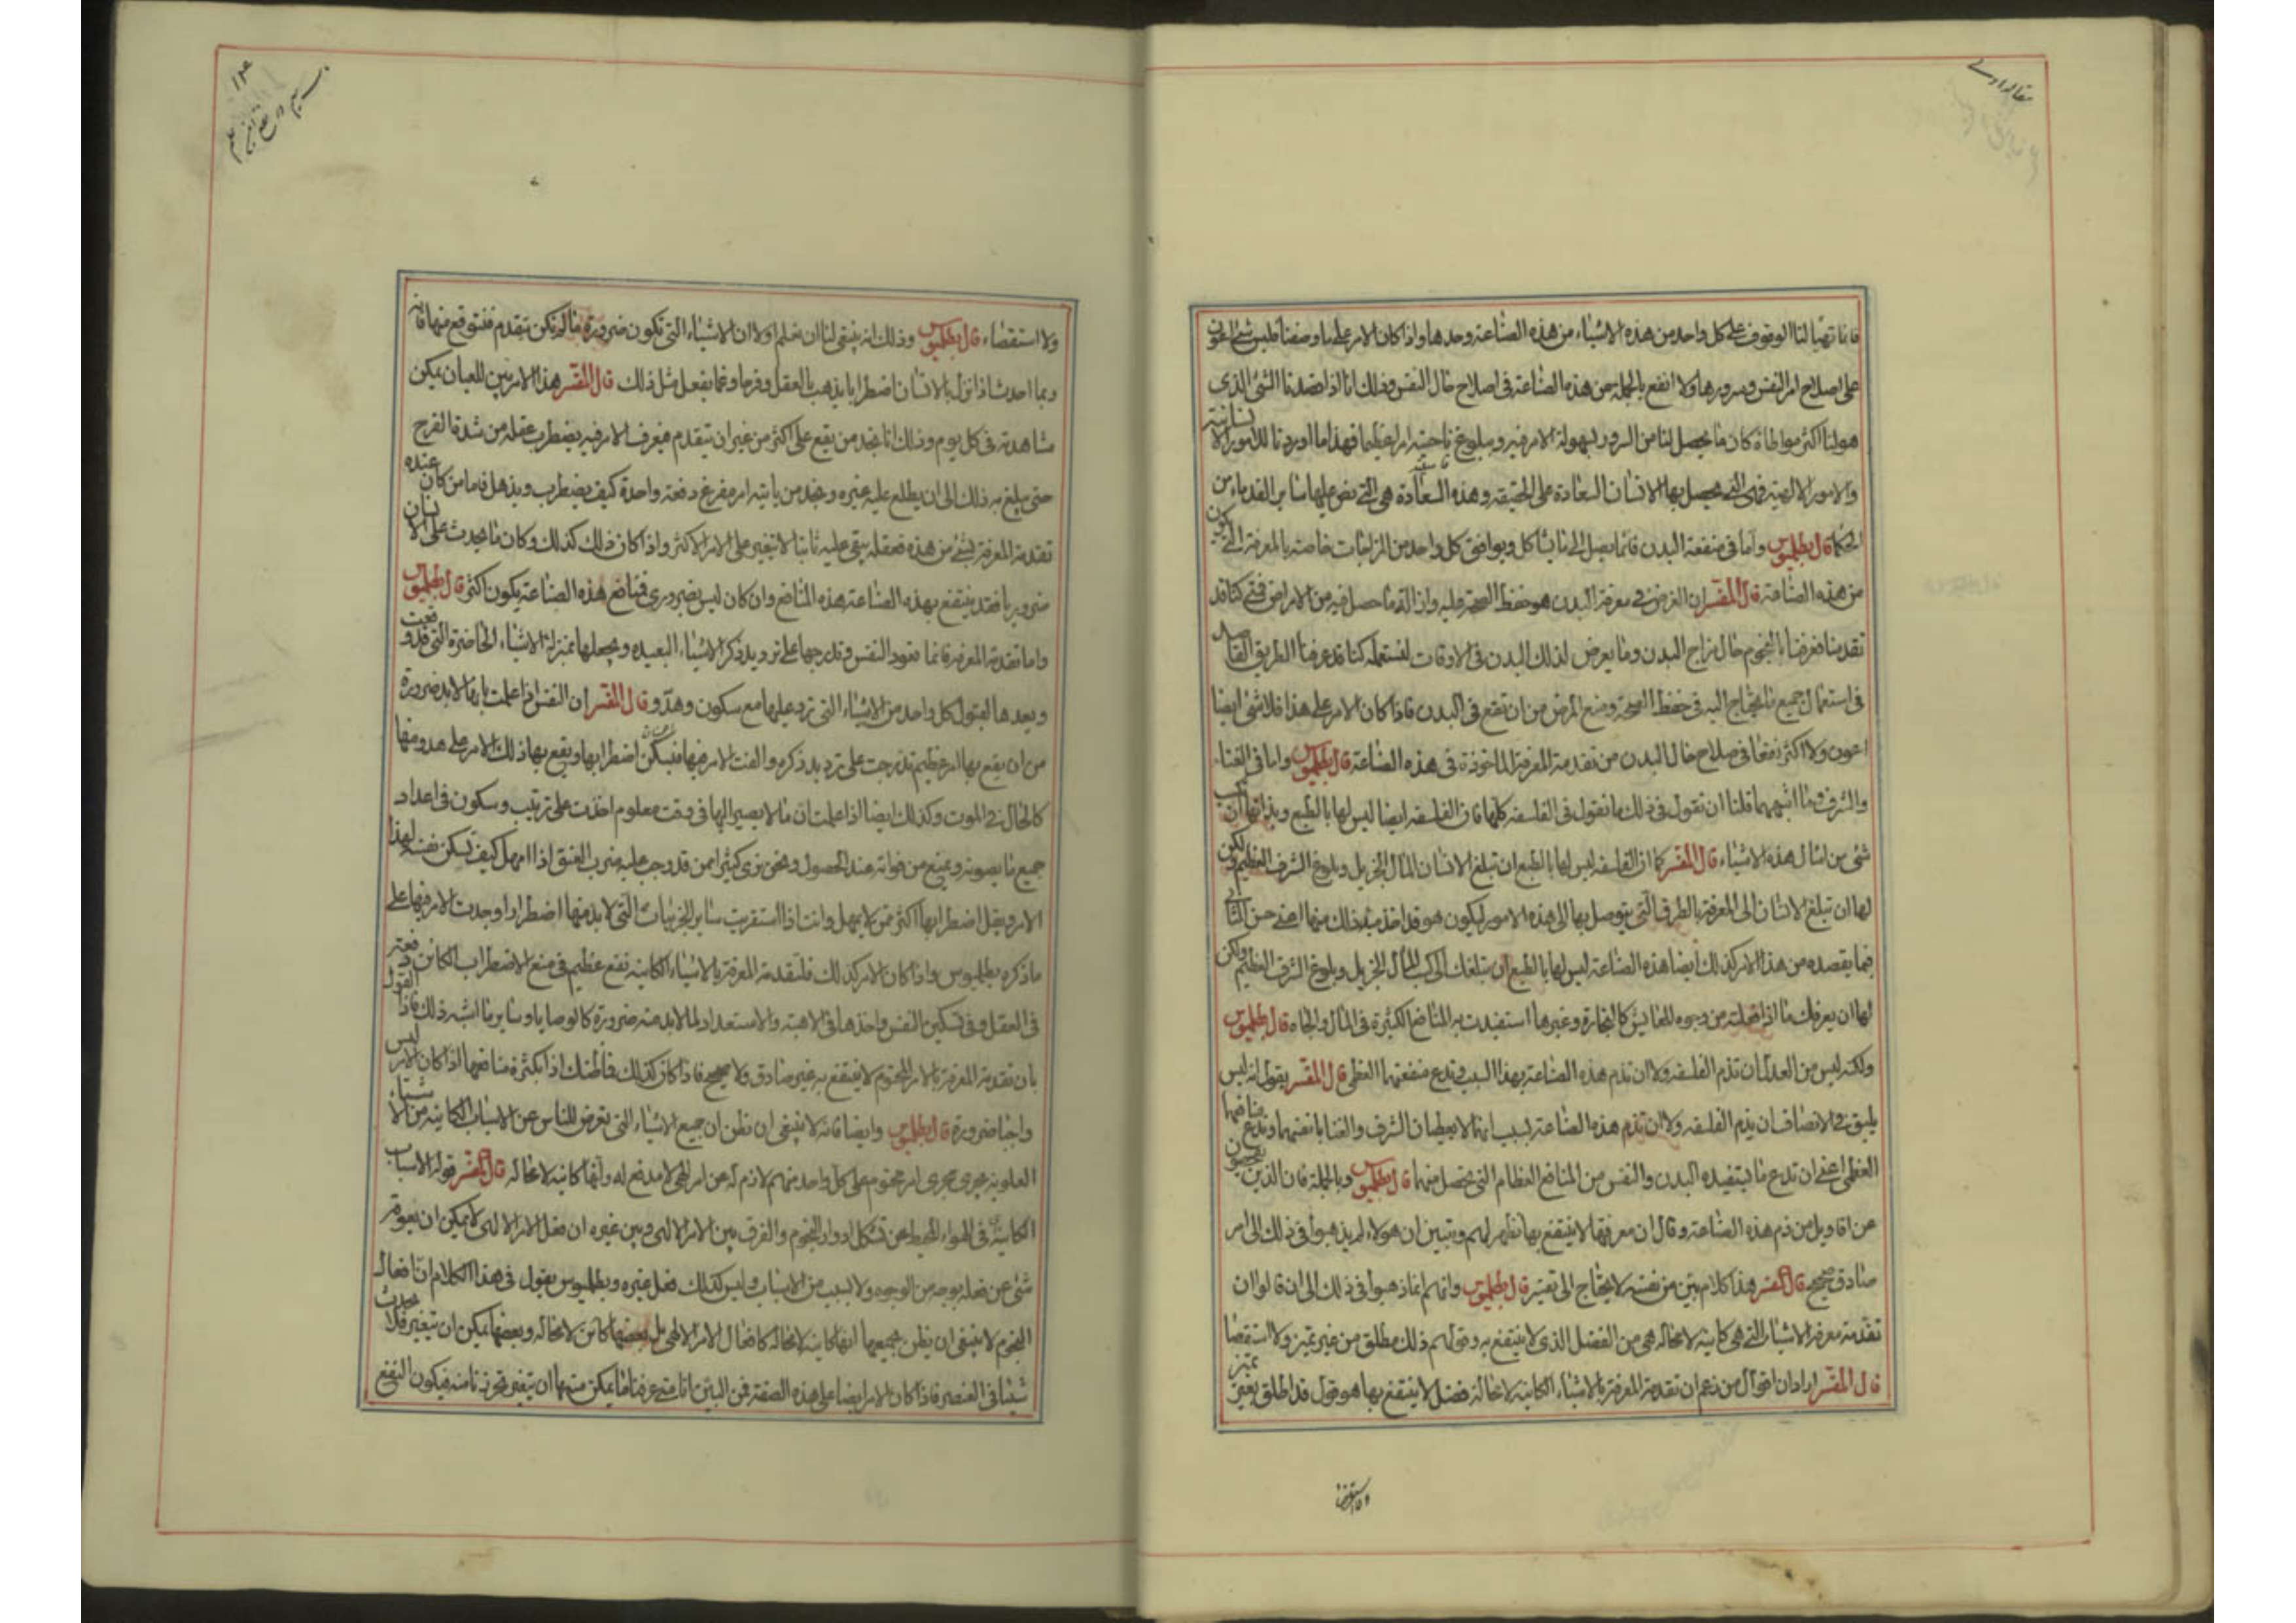 مقاله اولى
فانا تهيّا لنا الوقوف على كل واحد من هذه الاشياء من هذه الصناعة وحدها واذا كان الامر على ما وصفنا فليس شئ اعون
على اصلاح امر النفس وسرورها ولا انفع بالجملة من هذه الصناعة فى اصلاح حال النفس وذلك انا اذا قصدنا الشئ الذى
هو لنا اكثر مواطاة كان ما يحصل لنا من السرور لسهولة الامر فيه وبلوغ ناحيته امرا عظيما فهذا ما اوردنا للامور الانسانية
والامور الالهية فهى التى يحصل بها الانسان السعادة على الحقيقة وهذه السعادة هى التى نص عليها ساير القدماء من
الحكما قال بطلميوس واما فى منفعة البدن فانما يصل الى ما يشاكل ويوافق كل واحد من المزاجات خاصة بالمعرفة التى تكون
من هذه الصناعة قال المفسر ان الغرض فى معرفة البدن هو حفظ الصحة عليه وازالة ما حصل فيه من الامراض فمتى كنا قد
تقدمنا فعرفنا بالنجوم حال مزاج البدن وما يعرض لذلك البدن فى الاوقات المستعملة كنا قد عرفنا الطريق القاصد
فى استعمال جميع ما يحتاج اليه فى حفظ الصحة ومنع المرض من ان تقع فى البدن فاذا كان الامر على هذا فلا شئ ايضا
اعون ولا اكثر نفعا فى صلاح حال البدن من تقدمة المعرفة الماخوذة فى هذه الصناعة قال بطلميوس واما فى الغناء
والشرف وما اشبههما فلنا ان نقول فى ذلك ما نقول فى الفلسفة كلها فان الفلسفة ايضا ليس لها بالطبع وبذاتها ان تكسب
شئ من امثال هذه الاشياء قال المفسر كما ان الفلسفة ليس لها بالطبع ان تبلغ الانسان المال الجزيل وبلوغ الشرف العظيم ولكن
لها ان تبلغ الانسان الى المعرفة بالطرق التى يتوصل بها الى هذه الامور ليكون هو قد اخذ مبلغ ذلك منها اعنى حسن التأتى
فيما يقصده من هذا الامر كذلك ايضا هذه الصناعة ليس لها بالطبع ان تبلغك الى كسب المال الجزيل وبلوغ الشرف العظيم ولكن
لها ان يعرفك ما اذا فعلته من وجوه المعايش كالتجارة وغيرها استفيدت به المنافع الكثيرة فى المال والجاه قال بطلميوس
ولكنه ليس من العدل ان تذم الفلسفة ولا ان تذم هذه الصناعة بهذا السبب وتدع منفعتها العظمى قال المفسر يقول انه ليس
يليق فى الانصاف ان يذم الفلسفة ولا ان تذم هذه الصناعة بسبب انها لا يعطيان الشرف والغنا بانفسهما وندع منافعهما
العظمى اعنى ان تدع ما يستفيده البدن والنفس من المنافع العظام التى تحصل منهما قال بطلميوس وبالجملة فان الذين يفحصون
عن اقاويل من ذم هذه الصناعة وقال ان معرفتها لا ينتفع بها تظهر لهم وتبين ان هولاء لم يذهبوا فى ذلك الى امر
صادق صحيح قال المفسر هذا كلام بيّن من نفسه لا يحتاج الى تفسير قال بطلميوس وانهم انما ذهبوا فى ذلك الى ان قالوا ان
تقدمة معرفة الاشياء التى هى كاينة لا محالة هى من الفضل الذى لا ينتفع به وقولهم ذلك مطلق من غير تميز ولا استقصا
قال المفسر اراد ان اقوال من زعم ان تقدمة المعرفة بالاشياء الكاينة لا محالة فضل لا ينتفع بها هو قول قد اطلق بغير تميز
ولا استقصاء
١٣
ولا استقصاء قال بطلميوس وذلك انه ينبغى لنا ان نعلم اولا ان الاشياء التى تكون ضرورة ما لم تكن بتقدم فنتوقع منها فانه
ربما احدث اذا نزل بالانسان اضطرابا يذهب بالعقل وفرحا وغما يفعل مثل ذلك قال المفسر هذا الامر بين للعيان يمكن
مشاهدته فى كل يوم وذلك انا نجد من يقع على اكثر من غير ان يتقدم فيعرف الامر فيه يضطرب عقله من شدة الفرح
حتى يبلغ به ذلك الى ان يطلع عليه غيره ونجد من ياتيه امر مفزع دفعة واحدة كيف يضطرب ويذهل فاما من كان عنده
تقدمة المعرفة بشئ من هذه فعقله يبقى عليه ثابتا لا يتغير على الامر الاكثر واذا كان ذلك كذلك وكان ما يحدث على الانسان
ضروريا فقد ينتفع بهذه الصناعة هذه المنافع وان كان ليس بضرورى فمنافع هذه الصناعة يكون اكثر قال بطلميوس
واما تقدمة المعرفة فانها تعود النفس وتدرجها على ترديد ذكر الاشياء البعيده ويجعلها بمنزلة الاشياء الحاضرة التى قد وقعت
ويعدها لقبول كل واحد من الاشياء التى ترد عليها مع سكون وهدو قال المفسر ان النفس اذا علمت بانه لا بد ضرورة
من ان يقع بها امر عظيم تدرجت على ترديد ذكره والفت الامر فيها فيسكن اضطرابها ويقع بها ذلك الامر على هدو منها
كالحال فى الموت وكذلك ايضا اذا علمت ان مالا يصير اليها فى وقت معلوم اخذت على ترتيب وسكون فى اعداد
جميع ما يصونه ويمنع من فواته عند الحصول ونحن نرى كثيرا ممن قد وجب عليه ضرب العنق اذا امهل كيف تسكن نفسه لهذا
الامر ويقل اضطرابها اكثر ممن لا يمهل وانت اذا استقريت ساير الجزئيات التى لا بد منها اضطرارا وجدت الامر فيها على
ما ذكره بطلميوس واذا كان الامر كذلك فلتقدمة المعرفة بالاشياء الكاينة نفع عظيم فى منع الاضطراب الكائن دفعة
فى العقل وفى تسكين النفس واخذها فى الاهبة والاستعداد لما لا بد منه ضرورة كالوصايا وساير ما اشبه ذلك فاذا القول
بان تقدمة المعرفة بالامر المحتوم لا ينتفع به غير صادق ولا صحيح فاذا كان كذلك فما ظنك اذا بكثرة منافعها اذا كان الامر ليس
واجبا ضرورة قال بطلميوس وايضا فانه لا ينبغى ان نظن ان جميع الاشياء التى تعرض للناس عن الاسباب الكاينة من الاشياء
العلوية يجرى مجرى امر محتوم على كل واحد منهم لازم له عن امر الهى لا مدفع له وانها كاينة لا محالة قال المفسر قوله الاسباب
الكاينة فى الهواء المحيط عن تشكل ادوار النجوم والفرق بين الامر الالهى وبين غيره ان فعل الامر الالهى لا يمكن ان يعوقه
شئ عن فعله بوجه من الوجوه ولا لسبب من الاسباب وليس كذلك فعل غيره وبطلميوس يقول فى هذا الكلام ان افعال
النجوم لا ينبغى ان يظن بجميعها انها كاينة لا محالة كافعال الامر الالهى بل بعضها كائن لا محالة وبعضها يمكن ان يتغير فلا يحدث
شيئا فى العنصر فاذا كان الامر ايضا على هذه الصفة فمن البين انا متى عرفنا ما يمكن منها ان يتغير تحرزنا منه فيكون النفع